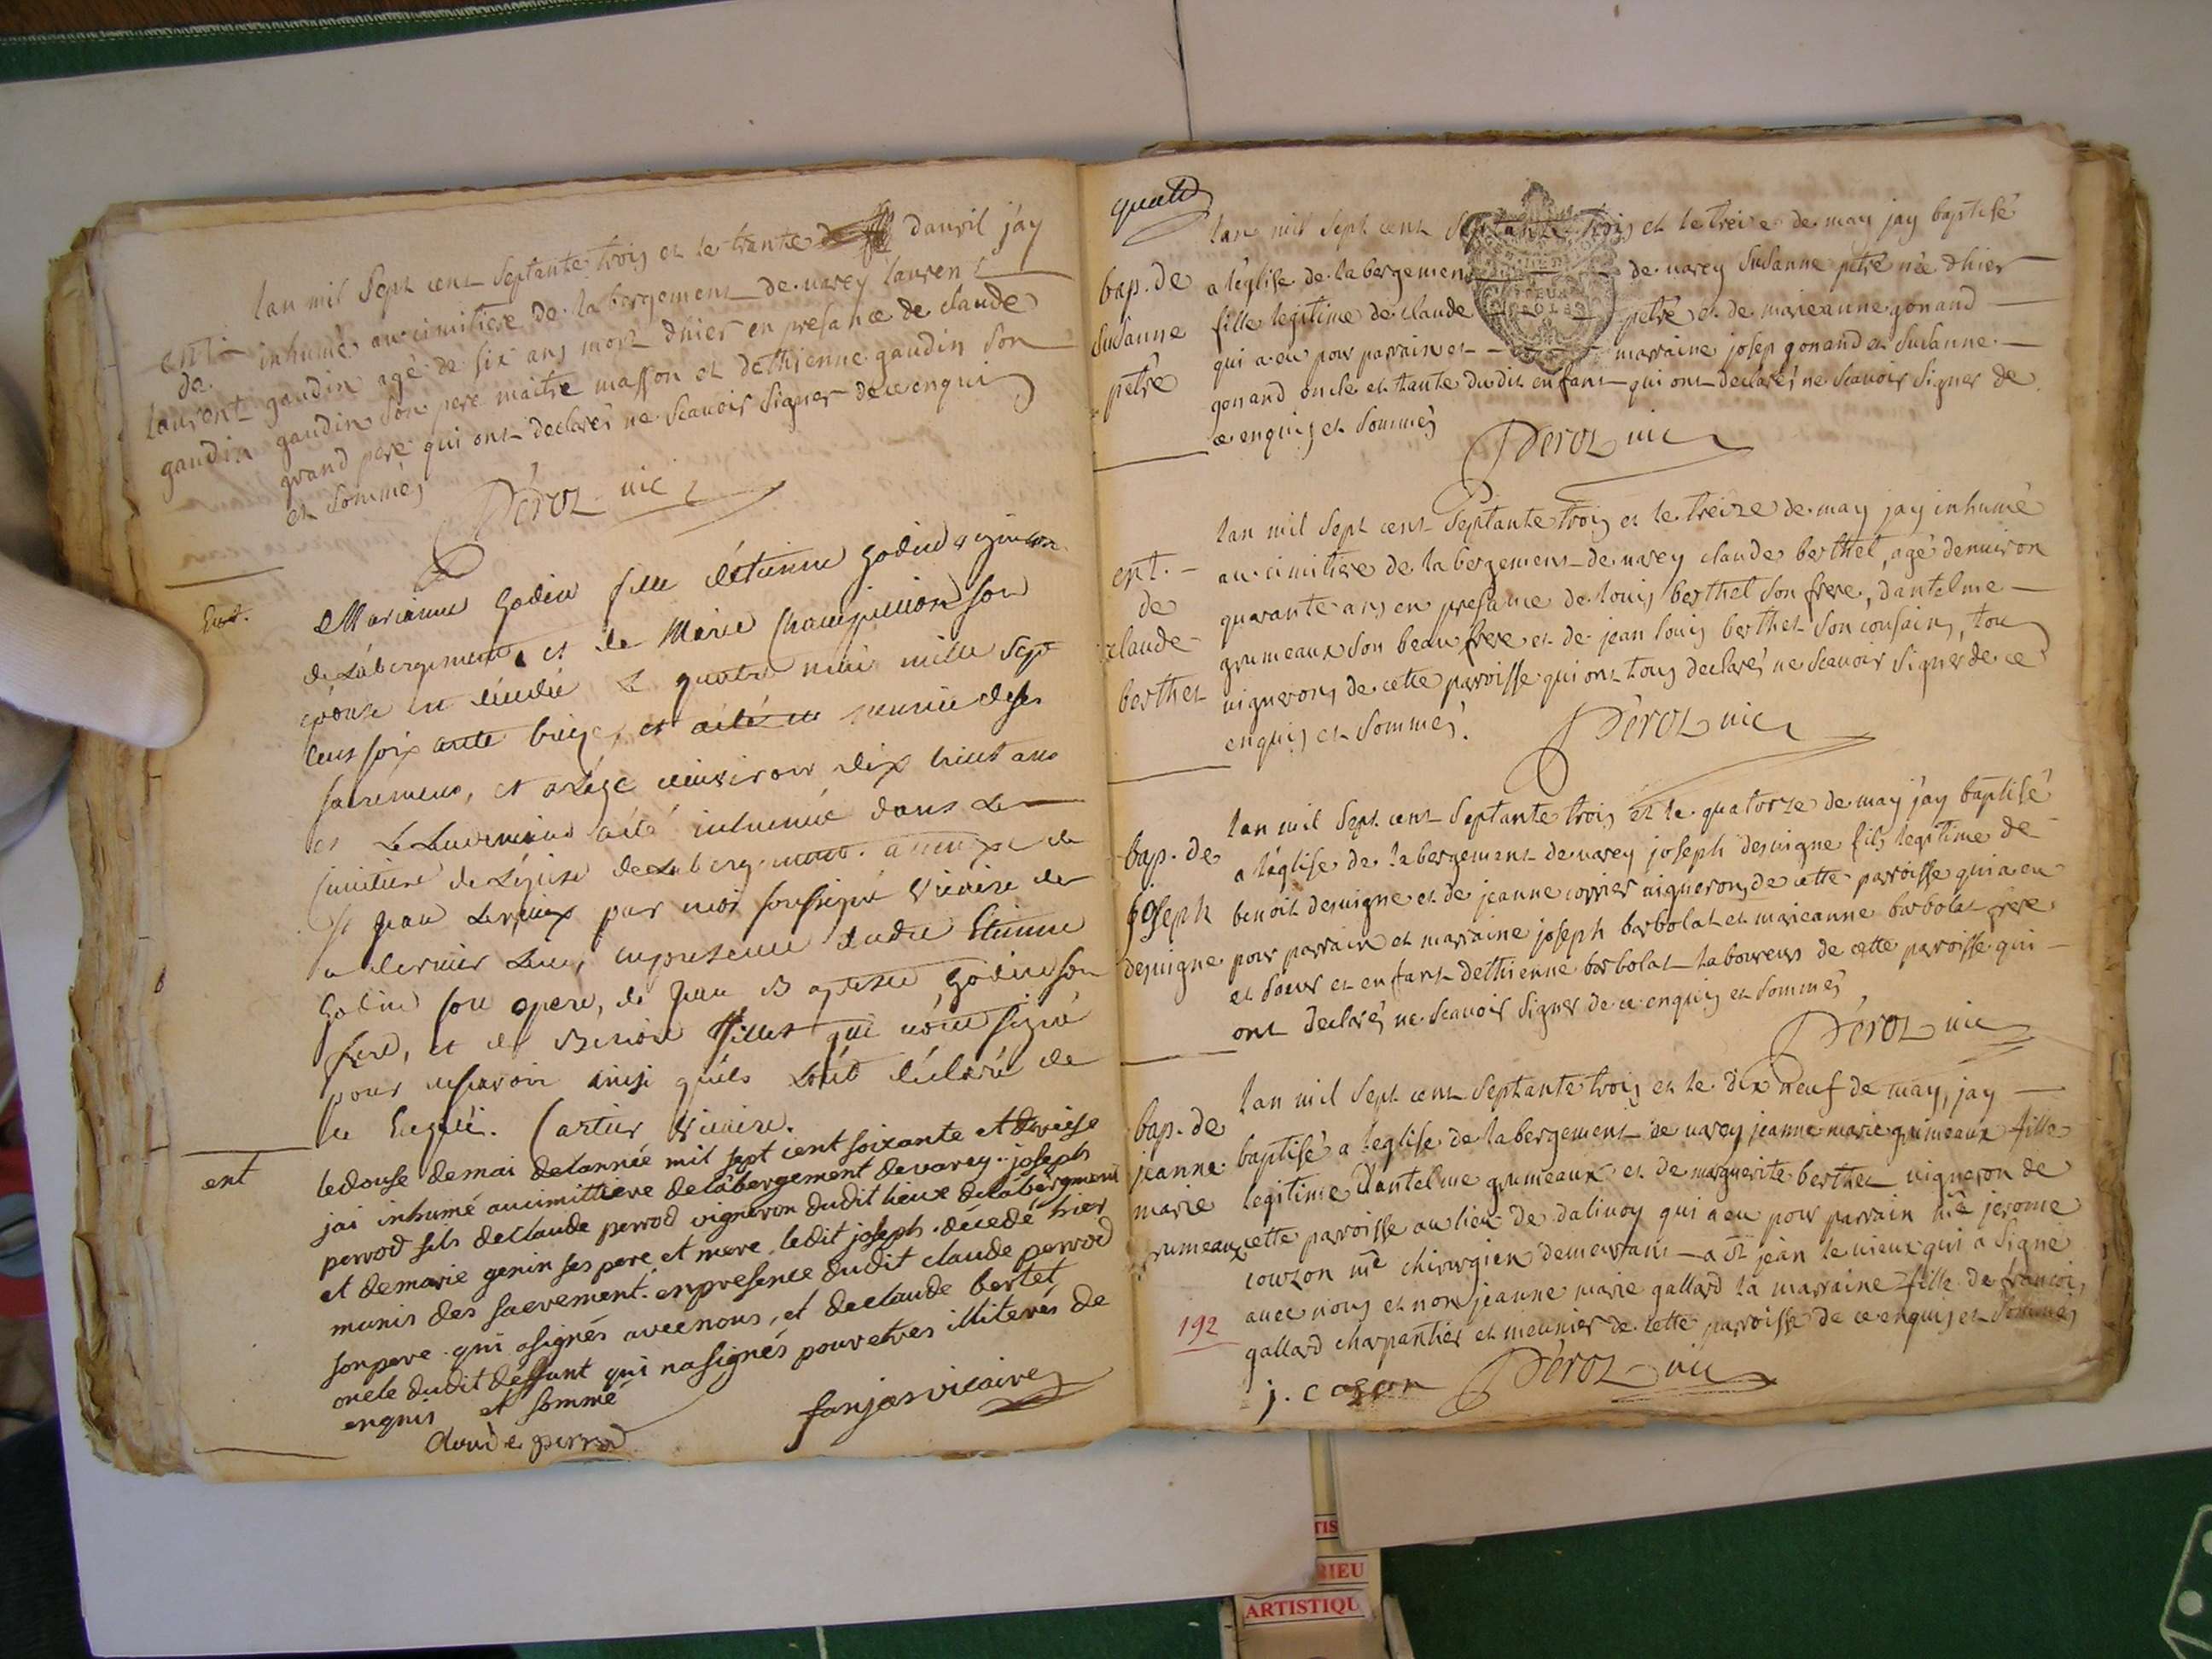 lan mil sept cent septante trois et le trante davril j'ay
ent. inhumé au cimitiere de labergement de varey laurent
de gaudin agé de six ans mort dhier en presance de claude
laurent gaudin son pere maitre masson et dethienne gaudin son
gaudin grand pere qui ont declarés ne scavoir signer de ce enquis
et sommés
Péroz vic
Ent. Marianne Godin fille détienne Godin vigneron
de Labergement, et de Marie Championd son
épouse est décédée le quatre mai mille sept
cent soixante treize, et munie de ses
sacremens, et a Lage denviron dix huit ans
et Le Landemain a été inhumée dans Le
cimitiere de Léglise de Labergement annexe de
St Jean Levieux par moi soussigné Vicaire de
ce dernier Lieu, en présence dudit Etienne
Godin son pere, de Jean Baptiste Godin son
frere, et de Benoit qui nont signé
pour ne savoir ainsi quils Lont déclaré de
ce Enquis. Cartier Vicaire.
ent ledouse demai delannée mil sept cent soixante et treise
jai inhumé aucimittiere delabergement devarey joseph
perrod fils declaude perrod vigneron dudit lieux delabergment
et demarie genin ses pere et mere, ledit joseph décedé hier
munis des sacrement. enpresence dudit claude perrod
sonpere qui asignés avecnous, et declaude bertet
oncle dudit deffunt qui nasignés pouretres illiterés de
enquis et sommé
claude perrod fanjas vicaire
quatr
lan mil sept cent septante trois et le treize de may jay baptisé
bap. de a léglise de labergement de varey susanne petre née dhier
susanne fille legitime de claude petre et de marieanne gonand
petre qui a eu pour parrain et marraine josep gonand et susanne
gonand oncle et tante dudit enfant qui ont declarés ne scavoir signer de
ce enquis et sommés
Péroz vic
lan mil sept cent septante trois et le treize de may jay inhumé
ent. au cimitiere de labergement de varey claude berthet, agé denviron
de quarante ans en presance de louis berthet son frere, dantelme
claude grumeaux son beau frere et de jean louis berthet son cousains, tou
berthet vignerons de cette parroisse qui ont tous declarés ne scavoir signer de ce
enquis et sommés.
Péroz vic
lan mil sept cent septante trois et le quatorze de may j'ay baptisé
bap. de a léglise de labergement de varey joseph desvigne fils legitime de
joseph benoit desvigne et de jeanne corrier vignerons de cette parroisse qui a eu
desvigne pour parrain et marraine joseph barbolat et marieanne barbolat frere
et soeur et enfant dethienne barbolat laboureurs de cette parroisse qui
ont declarés ne scavoir signer de ce enquis et sommés
Péroz vic
lan mil sept cent septante trois et le dix neuf de may, jay
bap. de baptisé a leglise de labergement de varey jeanne marie grumeaux fille
jeanne legitime dantelme grumeaux et de marguerite berthet vigneron de
marie cette parroisse au lieu de dalivoy qui a eu pour parrain me jerome
rumeaux couzon me chirurgien demeurant a st jean le vieux qui a signé
192 avec nous et non jeanne marie gallard la marraine fille de francois
gallard charpantier et meunier de cette parroisse de ce enquis et sommés
j. Péroz vic
ARTISTIQU